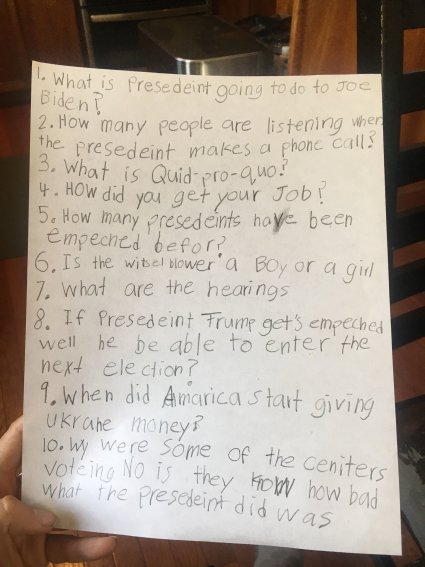 1. What is Presedeint going to do to Joe
Biden?
2. How many people are listening when
the presedeint makes a phone call?
3. What is Quid-pro-quo?
4. How did you get your Job?
5. How many presedeints have been
empeched befor?
6. Is the witselblower a Boy or a girl
7. What are the hearings
8. If Presedeint Trump get's empeched
well he be able to enter the
next election?
9. When did Amarica start giving
ukrane money?
10. Wy were some of the ceniters
voteing NO is they know how bad
what the presedeint did was